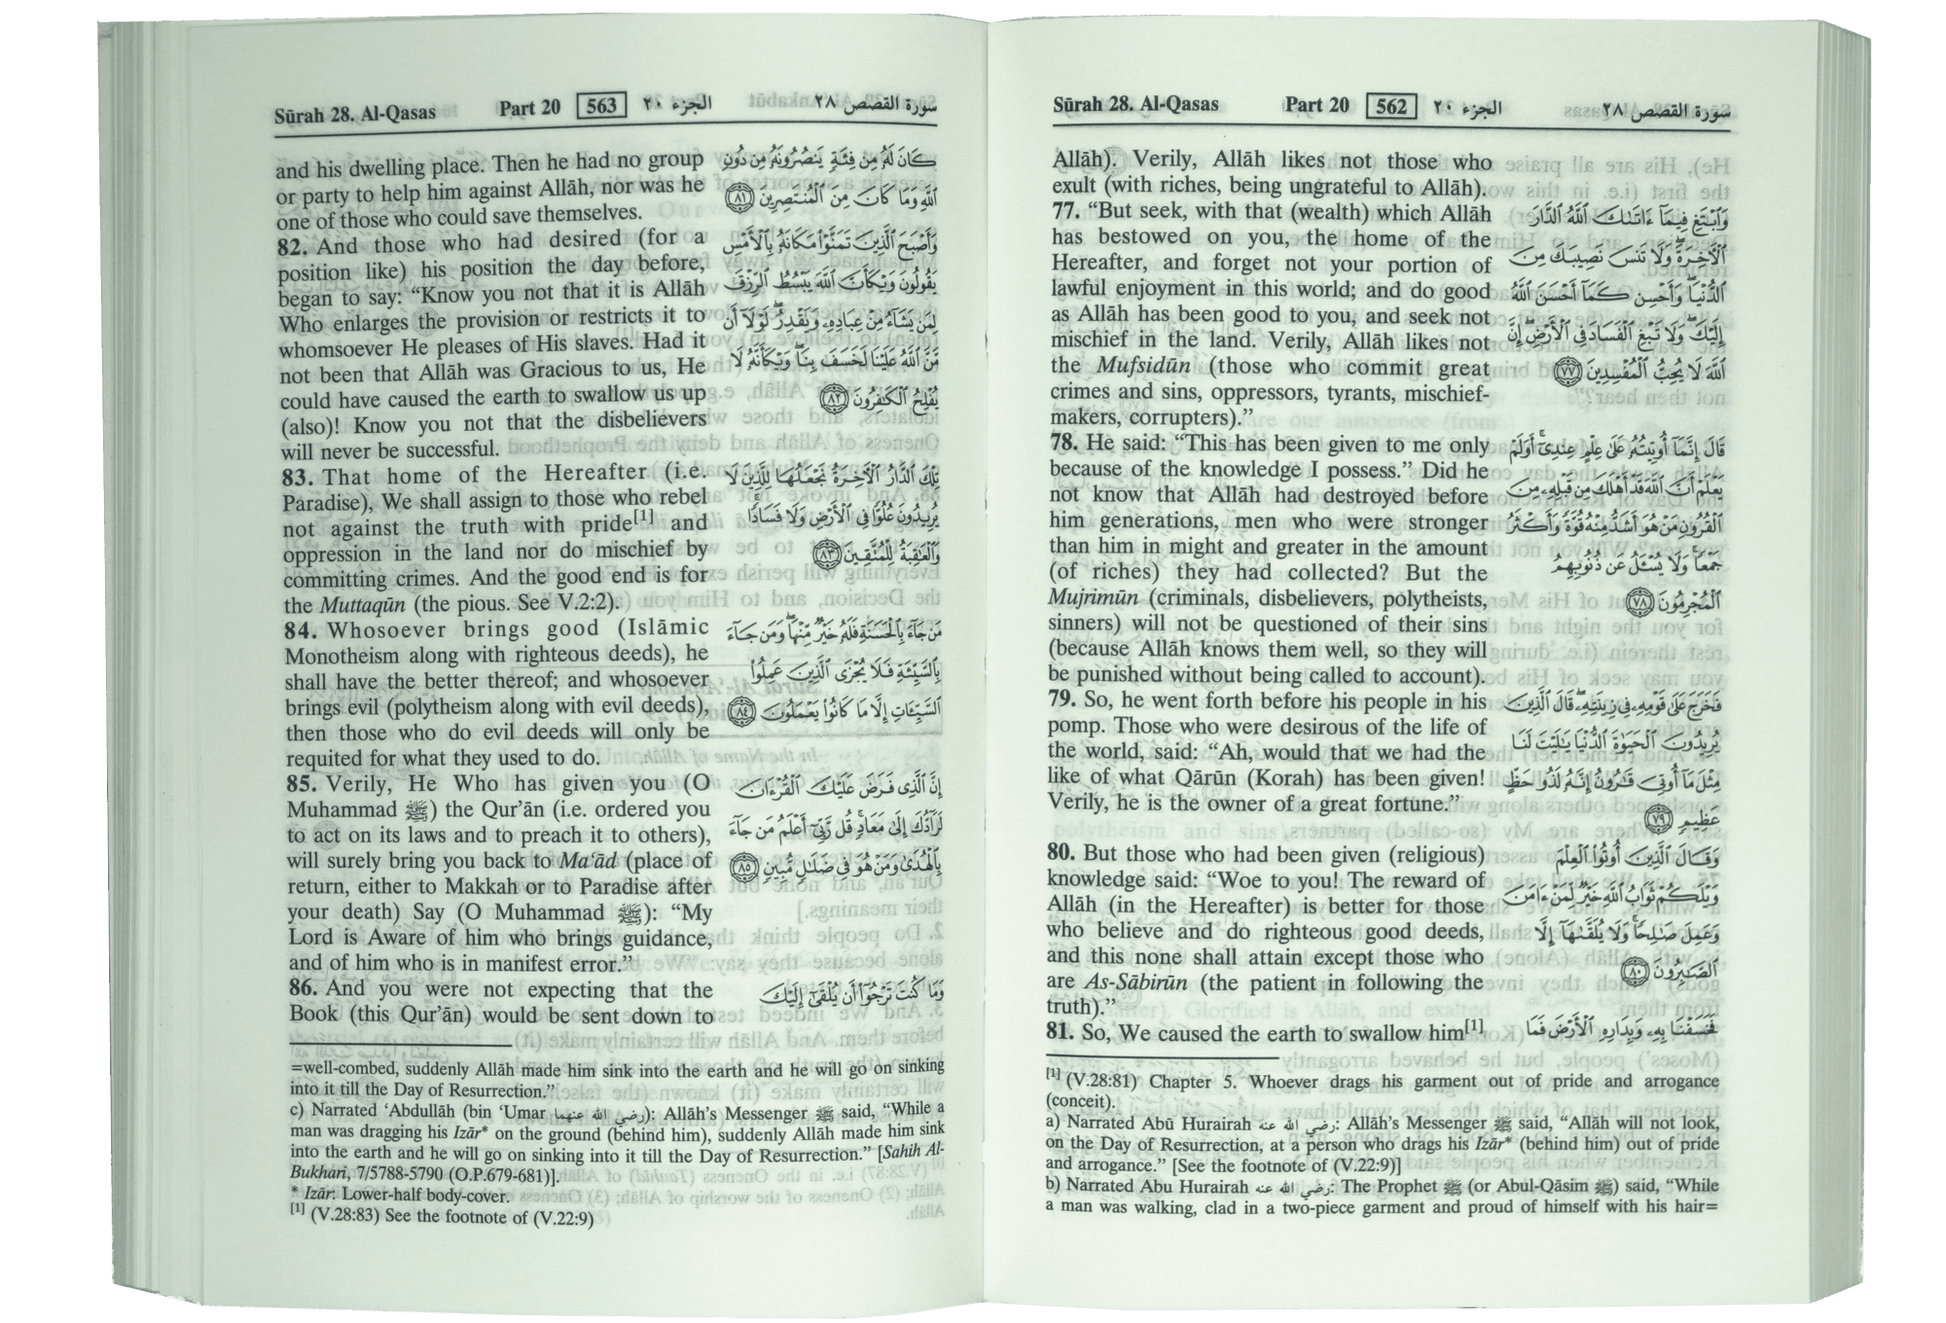 Sūrah 28. Al-Qasas Part 20 562 الجزء ٢٠ سورة القصص ٢٨
Allāh). Verily, Allāh likes not those who
exult (with riches, being ungrateful to Allāh).
77. “But seek, with that (wealth) which Allāh
has bestowed on you, the home of the
Hereafter, and forget not your portion of
lawful enjoyment in this world; and do good
as Allāh has been good to you, and seek not
mischief in the land. Verily, Allāh likes not
the Mufsidūn (those who commit great
crimes and sins, oppressors, tyrants, mischief-
makers, corrupters).”
78. He said: “This has been given to me only
because of the knowledge I possess.” Did he
not know that Allāh had destroyed before
him generations, men who were stronger
than him in might and greater in the amount
(of riches) they had collected? But the
Mujrimūn (criminals, disbelievers, polytheists,
sinners) will not be questioned of their sins
(because Allāh knows them well, so they will
be punished without being called to account).
79. So, he went forth before his people in his
pomp. Those who were desirous of the life of
the world, said: “Ah, would that we had the
like of what Qārūn (Korah) has been given!
Verily, he is the owner of a great fortune.”
80. But those who had been given (religious)
knowledge said: “Woe to you! The reward of
Allāh (in the Hereafter) is better for those
who believe and do righteous good deeds,
and this none shall attain except those who
are As-Sābirūn (the patient in following the
truth).”
81. So, We caused the earth to swallow him[1]
وَٱبْتَغِ فِيمَآ ءَاتَىٰكَ ٱللَّهُ ٱلدَّارَ
ٱلْأَخِرَةَ ۖ وَلَا تَنسَ نَصِيبَكَ مِنَ
ٱلدُّنْيَا ۖ وَأَحْسِن كَمَآ أَحْسَنَ ٱللَّهُ
إِلَيْكَ ۖ وَلَا تَبْغِ ٱلْفَسَادَ فِى ٱلْأَرْضِ ۖ إِنَّ
ٱللَّهَ لَا يُحِبُّ ٱلْمُفْسِدِينَ ﴿٧٧﴾
قَالَ إِنَّمَآ أُوتِيتُهُۥ عَلَىٰ عِلْمٍ عِندِىٓ ۚ أَوَلَمْ
يَعْلَمْ أَنَّ ٱللَّهَ قَدْ أَهْلَكَ مِن قَبْلِهِۦ مِنَ
ٱلْقُرُونِ مَنْ هُوَ أَشَدُّ مِنْهُ قُوَّةً وَأَكْثَرُ
جَمْعًا ۚ وَلَا يُسْـَٔلُ عَن ذُنُوبِهِمُ
ٱلْمُجْرِمُونَ ﴿٧٨﴾
فَخَرَجَ عَلَىٰ قَوْمِهِۦ فِى زِينَتِهِۦ ۖ قَالَ ٱلَّذِينَ
يُرِيدُونَ ٱلْحَيَوٰةَ ٱلدُّنْيَا يَـٰلَيْتَ لَنَا
مِثْلَ مَآ أُوتِىَ قَـٰرُونُ إِنَّهُۥ لَذُو حَظٍّ
عَظِيمٍ ﴿٧٩﴾
وَقَالَ ٱلَّذِينَ أُوتُوا۟ ٱلْعِلْمَ
وَيْلَكُمْ ثَوَابُ ٱللَّهِ خَيْرٌ لِّمَنْ ءَامَنَ
وَعَمِلَ صَـٰلِحًا ۚ وَلَا يُلَقَّىٰهَآ إِلَّا
ٱلصَّـٰبِرُونَ ﴿٨٠﴾
فَخَسَفْنَا بِهِۦ وَبِدَارِهِ ٱلْأَرْضَ فَمَا
[1] (V.28:81) Chapter 5. Whoever drags his garment out of pride and arrogance
(conceit).
a) Narrated Abū Hurairah رضي الله عنه: Allāh’s Messenger ﷺ said, “Allāh will not look,
on the Day of Resurrection, at a person who drags his Izār* (behind him) out of pride
and arrogance.” [See the footnote of (V.22:9)]
b) Narrated Abu Hurairah رضي الله عنه: The Prophet ﷺ (or Abul-Qāsim ﷺ) said, “While
a man was walking, clad in a two-piece garment and proud of himself with his hair=
Sūrah 28. Al-Qasas Part 20 563 الجزء ٢٠ سورة القصص ٢٨
and his dwelling place. Then he had no group
or party to help him against Allāh, nor was he
one of those who could save themselves.
82. And those who had desired (for a
position like) his position the day before,
began to say: “Know you not that it is Allāh
Who enlarges the provision or restricts it to
whomsoever He pleases of His slaves. Had it
not been that Allāh was Gracious to us, He
could have caused the earth to swallow us up
(also)! Know you not that the disbelievers
will never be successful.
83. That home of the Hereafter (i.e.
Paradise), We shall assign to those who rebel
not against the truth with pride[1] and
oppression in the land nor do mischief by
committing crimes. And the good end is for
the Muttaqūn (the pious. See V.2:2).
84. Whosoever brings good (Islāmic
Monotheism along with righteous deeds), he
shall have the better thereof; and whosoever
brings evil (polytheism along with evil deeds),
then those who do evil deeds will only be
requited for what they used to do.
85. Verily, He Who has given you (O
Muhammad ﷺ) the Qur’ān (i.e. ordered you
to act on its laws and to preach it to others),
will surely bring you back to Ma‘ād (place of
return, either to Makkah or to Paradise after
your death) Say (O Muhammad ﷺ): “My
Lord is Aware of him who brings guidance,
and of him who is in manifest error.”
86. And you were not expecting that the
Book (this Qur’ān) would be sent down to
كَانَ لَهُۥ مِن فِئَةٍ يَنصُرُونَهُۥ مِن دُونِ
ٱللَّهِ وَمَا كَانَ مِنَ ٱلْمُنتَصِرِينَ ﴿٨١﴾
وَأَصْبَحَ ٱلَّذِينَ تَمَنَّوْا۟ مَكَانَهُۥ بِٱلْأَمْسِ
يَقُولُونَ وَيْكَأَنَّ ٱللَّهَ يَبْسُطُ ٱلرِّزْقَ
لِمَن يَشَآءُ مِنْ عِبَادِهِۦ وَيَقْدِرُ ۖ لَوْلَآ أَن
مَّنَّ ٱللَّهُ عَلَيْنَا لَخَسَفَ بِنَا ۖ وَيْكَأَنَّهُۥ لَا
يُفْلِحُ ٱلْكَـٰفِرُونَ ﴿٨٢﴾
تِلْكَ ٱلدَّارُ ٱلْأَخِرَةُ نَجْعَلُهَا لِلَّذِينَ لَا
يُرِيدُونَ عُلُوًّا فِى ٱلْأَرْضِ وَلَا فَسَادًا ۚ
وَٱلْعَـٰقِبَةُ لِلْمُتَّقِينَ ﴿٨٣﴾
مَن جَآءَ بِٱلْحَسَنَةِ فَلَهُۥ خَيْرٌ مِّنْهَا ۖ وَمَن جَآءَ
بِٱلسَّيِّئَةِ فَلَا يُجْزَى ٱلَّذِينَ عَمِلُوا۟
ٱلسَّيِّـَٔاتِ إِلَّا مَا كَانُوا۟ يَعْمَلُونَ ﴿٨٤﴾
إِنَّ ٱلَّذِى فَرَضَ عَلَيْكَ ٱلْقُرْءَانَ
لَرَآدُّكَ إِلَىٰ مَعَادٍ ۚ قُل رَّبِّىٓ أَعْلَمُ مَن جَآءَ
بِٱلْهُدَىٰ وَمَنْ هُوَ فِى ضَلَـٰلٍ مُّبِينٍ ﴿٨٥﴾
وَمَا كُنتَ تَرْجُوٓا۟ أَن يُلْقَىٰٓ إِلَيْكَ
=well-combed, suddenly Allāh made him sink into the earth and he will go on sinking
into it till the Day of Resurrection.”
c) Narrated ‘Abdullāh (bin ‘Umar رضي الله عنهما): Allāh’s Messenger ﷺ said, “While a
man was dragging his Izār* on the ground (behind him), suddenly Allāh made him sink
into the earth and he will go on sinking into it till the Day of Resurrection.” [Sahih Al-
Bukhari, 7/5788-5790 (O.P.679-681)].
* Izār: Lower-half body-cover.
[1] (V.28:83) See the footnote of (V.22:9)